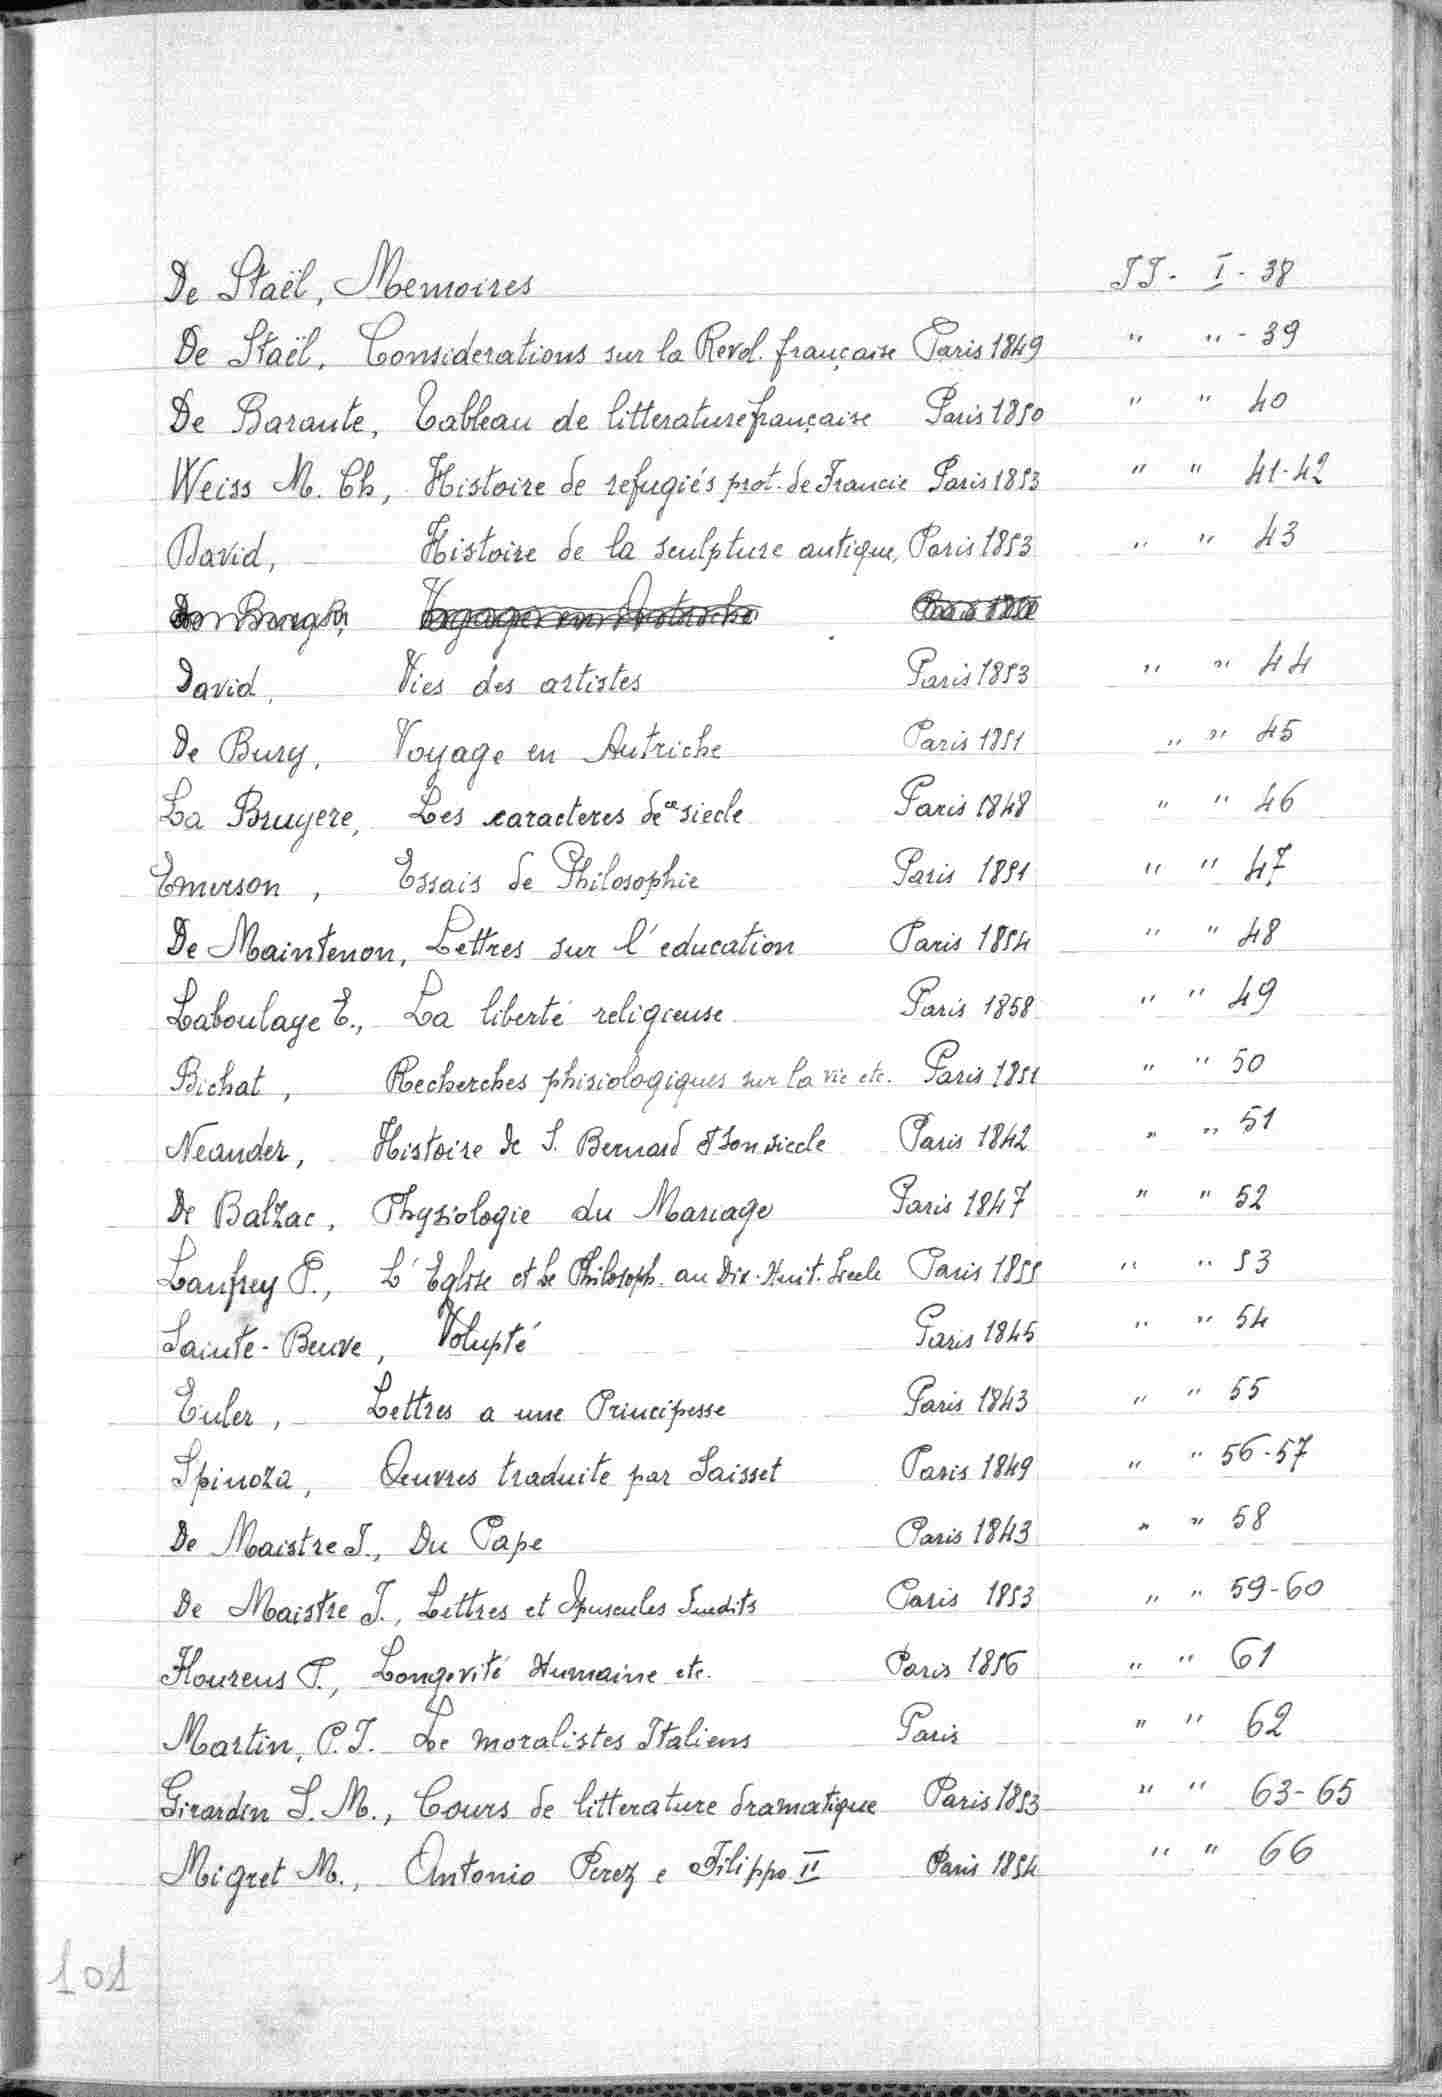 De Staël, Memoires JJ - I - 38
De Staël, Considerations sur la Revol. française Paris 1849 " " - 39
De Barante, Tableau de litterature française Paris 1850 " " 40
Weiss M. Ch, Histoire de refugiés prot. de Francie Paris 1853 " " 41-42
David, Histoire de la sculpture antique, Paris 1853 " " 43
David, Vies des artistes Paris 1853 " " 44
De Bury, Voyage en Autriche Paris 1851 " " 45
La Bruyere, Les caracteres de ce siecle Paris 1848 " " 46
Emerson, Essais de Philosophie Paris 1851 " " 47
De Maintenon, Lettres sur l'education Paris 1854 " " 48
Laboulaye E., La liberté religieuse Paris 1858 " " 49
Bichat, Recherches phisiologiques sur la vie etc. Paris 1851 " " 50
Neander, Histoire de S. Bernard et son siecle Paris 1842 " " 51
De Balzac, Physiologie du Mariage Paris 1847 " " 52
Lanfrey P., L'Eglise et le Philosoph. au Dix-Huit. Siecle Paris 1855 " " 53
Sainte-Beuve, Volupté Paris 1845 " " 54
Euler, Lettres a une Principesse Paris 1843 " " 55
Spinoza, Œuvres traduite par Saisset Paris 1849 " " 56-57
De Maistre J., Du Pape Paris 1843 " " 58
De Maistre J., Lettres et Opuscules Inedits Paris 1853 " " 59-60
Flourens P., Longevité Humaine etc. Paris 1856 " " 61
Martin, P.J. Le moralistes Italiens Paris " " 62
Girardin S. M., Cours de litterature dramatique Paris 1853 " " 63-65
Migret M., Antonio Perez e Filippo II Paris 1854 " " 66
101